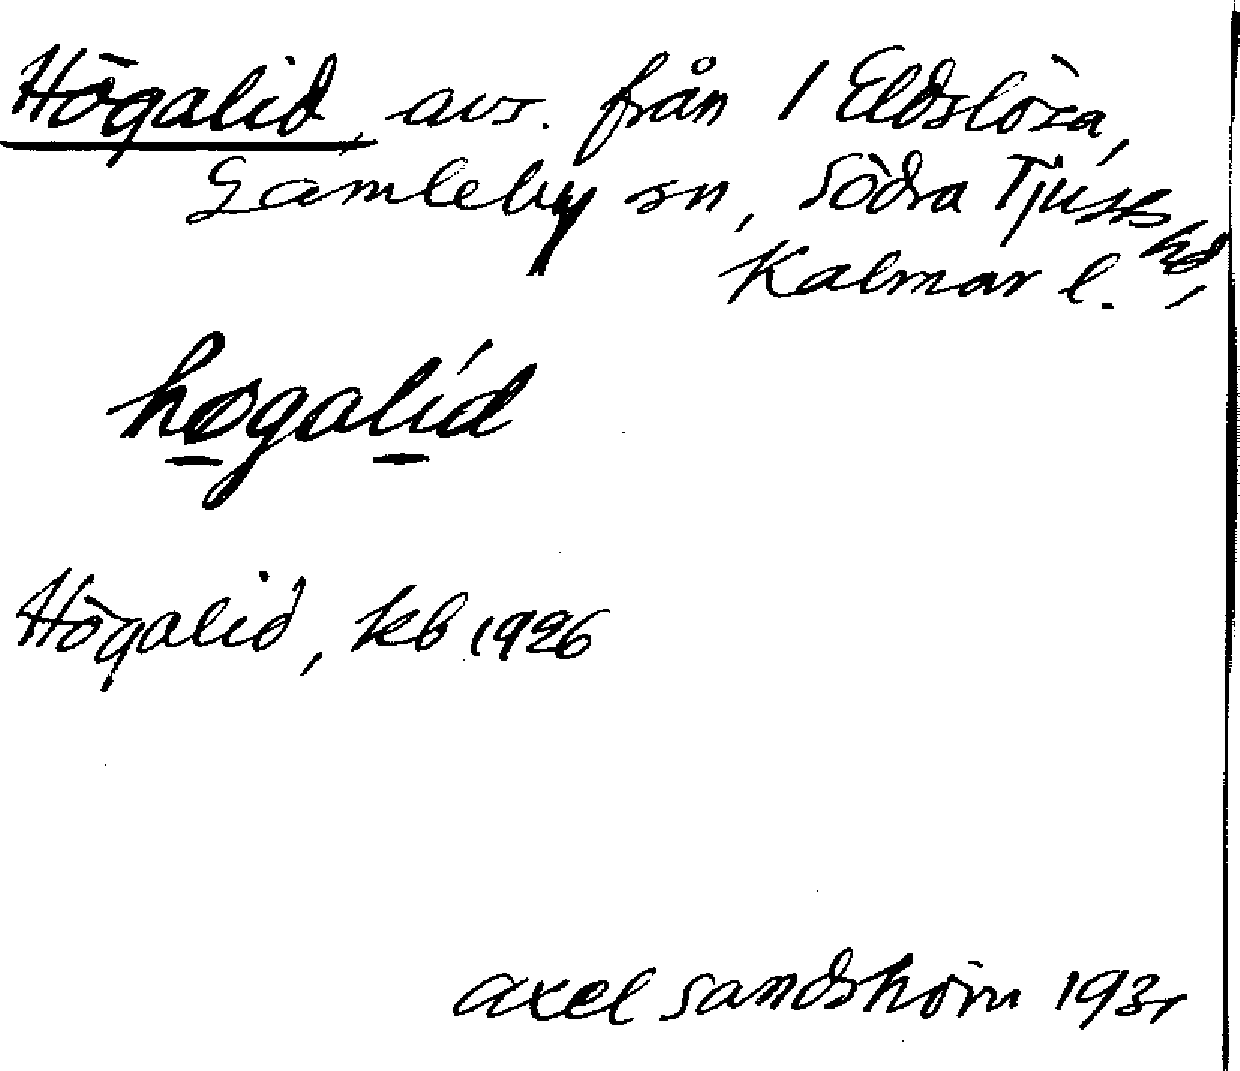 Högalid, avs. från 1 Eldslösa,
Gamleby sn, Södra Tjusts hd,
Kalmar l.
høgalid
Högalid, kb 1926
Axel Sandshörn